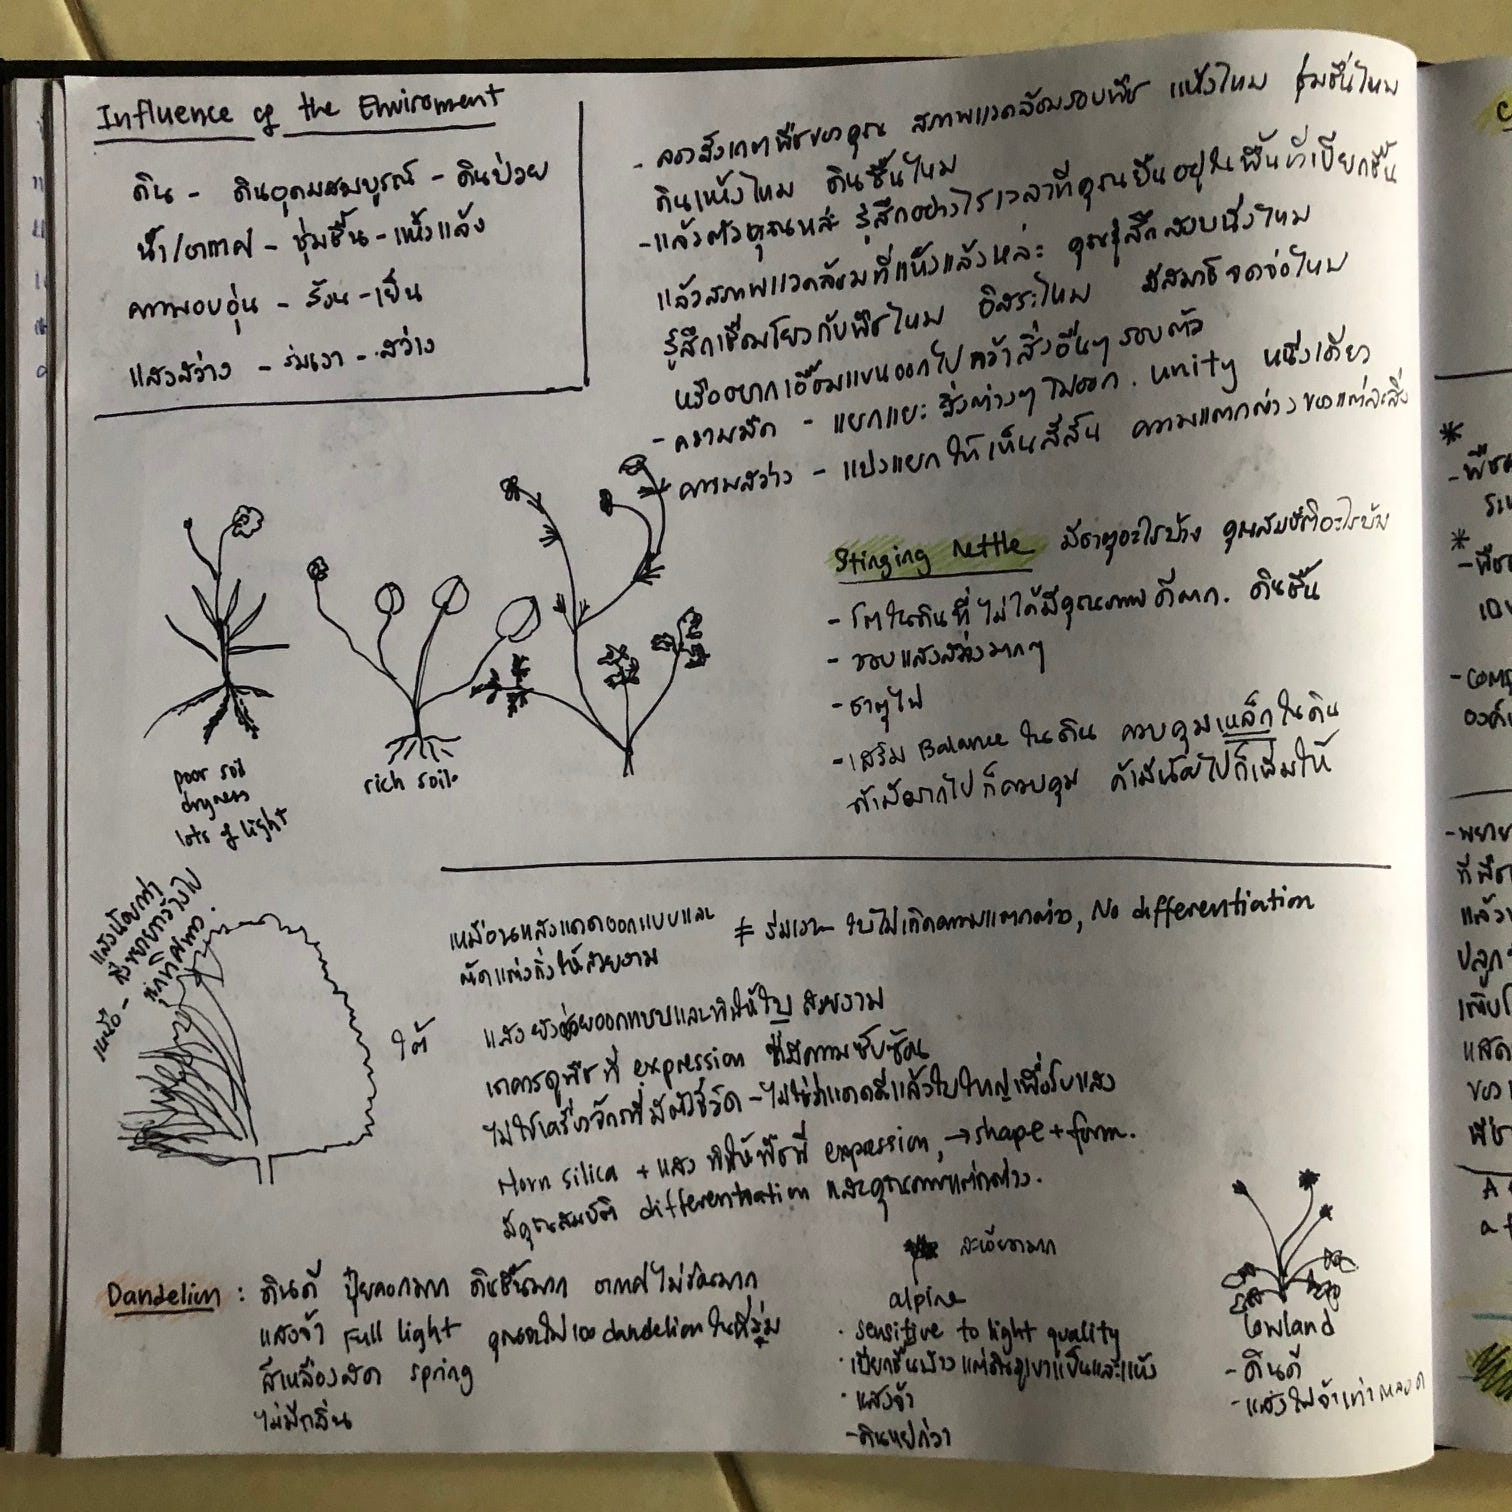 Influence of the Enviroment
ดิน - ดินอุดมสมบูรณ์ - ดินป่วย
น้ำ/อากาศ - ชุ่มชื้น - แห้งแล้ง
ความอบอุ่น - ร้อน - เย็น
แสงสว่าง - ร่มเงา - สว่าง
- ลองสังเกตพืชของคุณ สภาพแวดล้อมรอบพืช แห้งไหม ชุ่มชื้นไหม
ดินแห้งไหม ดินชื้นไหม
- แล้วตัวคุณหล่ะ รู้สึกอย่างไรเวลาที่คุณยืนอยู่ในพื้นที่เปียกชื้น
แล้วสภาพแวดล้อมที่แห้งแล้งหล่ะ คุณรู้สึกสงบนิ่งไหม
รู้สึกเชื่อมโยงกับพืชไหม อิสระไหม มีสมาธิจดจ่อไหม
หรืออยากเอื้อมแขนออกไปคว้าสิ่งอื่นๆ รอบตัว
- ความมืด - แยกแยะสิ่งต่างๆ ไม่ออก. unity หนึ่งเดียว
ความสว่าง - แบ่งแยกให้เห็นสีสัน ความแตกต่างของแต่ละสิ่ง
poor soil
dryness
lots of light
rich soil.
Stinging nettle มีธาตุอะไรบ้าง คุณสมบัติอะไรบ้าง
- โตในดินที่ไม่ได้มีคุณภาพดีมาก. ดินชื้น
- ชอบแสงสว่างมากๆ
- ธาตุไฟ
- เสริม Balance ในดิน ควบคุมเหล็กในดิน
ถ้ามีมากไปก็ควบคุม ถ้ามีน้อยไปก็เพิ่มให้
แสงน้อยกว่า
เหนือ - กิ่งขยายกว้างไป
ทุกทิศทาง.
ใต้
เหมือนแสงแดดออกแบบและ
ตัดแต่งกิ่งให้สวยงาม
≠ ร่มเงา ใบไม่เกิดความแตกต่าง, No differentiation
แสงยังช่วยออกแบบและทำให้ใบ สวยงาม
เราควรดูพืชที่ expression ที่มีความซับซ้อน
ไม่ใช่เครื่องจักรที่มีตัวชี้วัด - ไม่ใช่ว่าแดดดีแล้วใบใหญ่เพื่อรับแสง
Horn silica + แสง ทำให้พืชมี expression, → shape + form.
มีคุณสมบัติ differentiation และคุณภาพแตกต่าง.
Dandelion : ดินดี ปุ๋ยคอกมาก ดินชื้นมาก อากาศไม่ร้อนมาก
แสงจ้า Full light คุณจะไม่เจอ dandelion ในที่ร่ม
สีเหลืองสด spring
ไม่มีกลิ่น
ละเอียดมาก
alpine
· sensitive to light quality
· เปียกชื้นบ้าง แต่ดินภูเขาเย็นและแห้ง
· แสงจ้า
- ดินแย่กว่า
lowland
- ดินดี
- แสงไม่จ้าเท่า